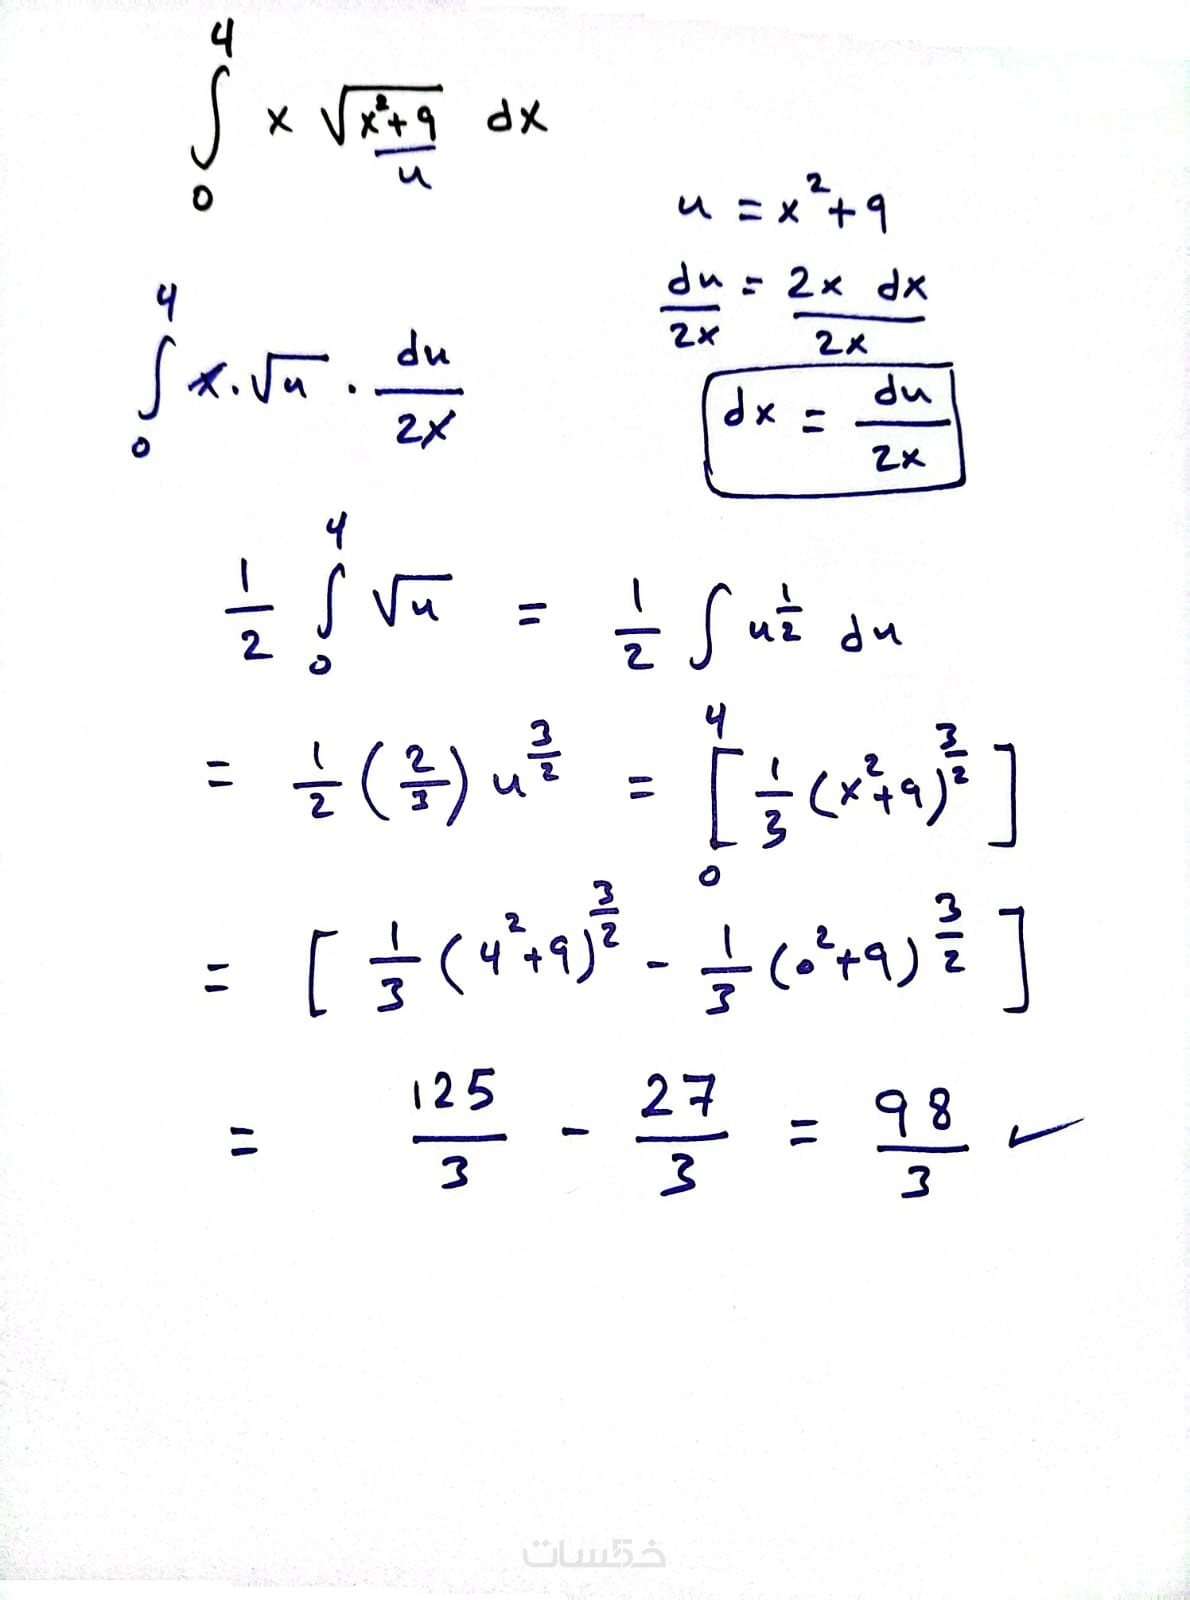 ∫₀⁴ x √(x²+9) dx
u
u = x²+9
du/2x = 2x dx/2x
dx = du/2x
∫₀⁴ x · √u · du/2x
1/2 ∫₀⁴ √u = 1/2 ∫ u^(1/2) du
= 1/2 (2/3) u^(3/2) = [1/3 (x²+9)^(3/2)]₀⁴
= [1/3 (4²+9)^(3/2) - 1/3 (0²+9)^(3/2)]
= 125/3 - 27/3 = 98/3 ✓
خمسات